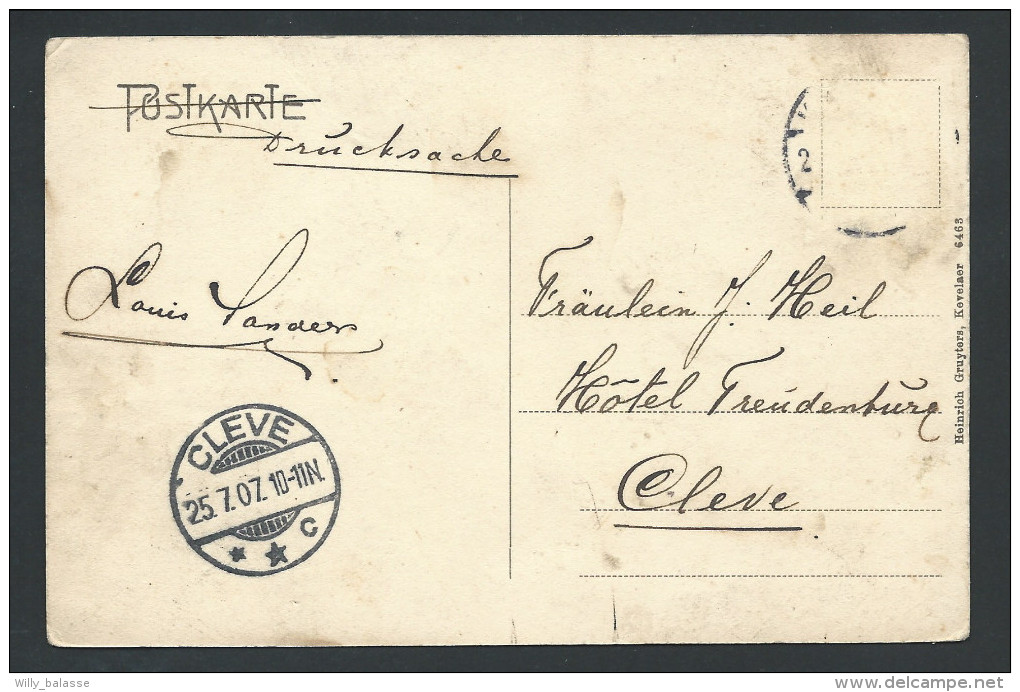 POSTKARTE
Drucksache
Louis Sanders
Fräulein J. Heil
Hôtel Freudenburg
Cleve
CLEVE
25.7.07.10-11N.
* * C
2
Heinrich Gruyters, Kevelaer 6463
Willy_balasse
www.delcampe.net